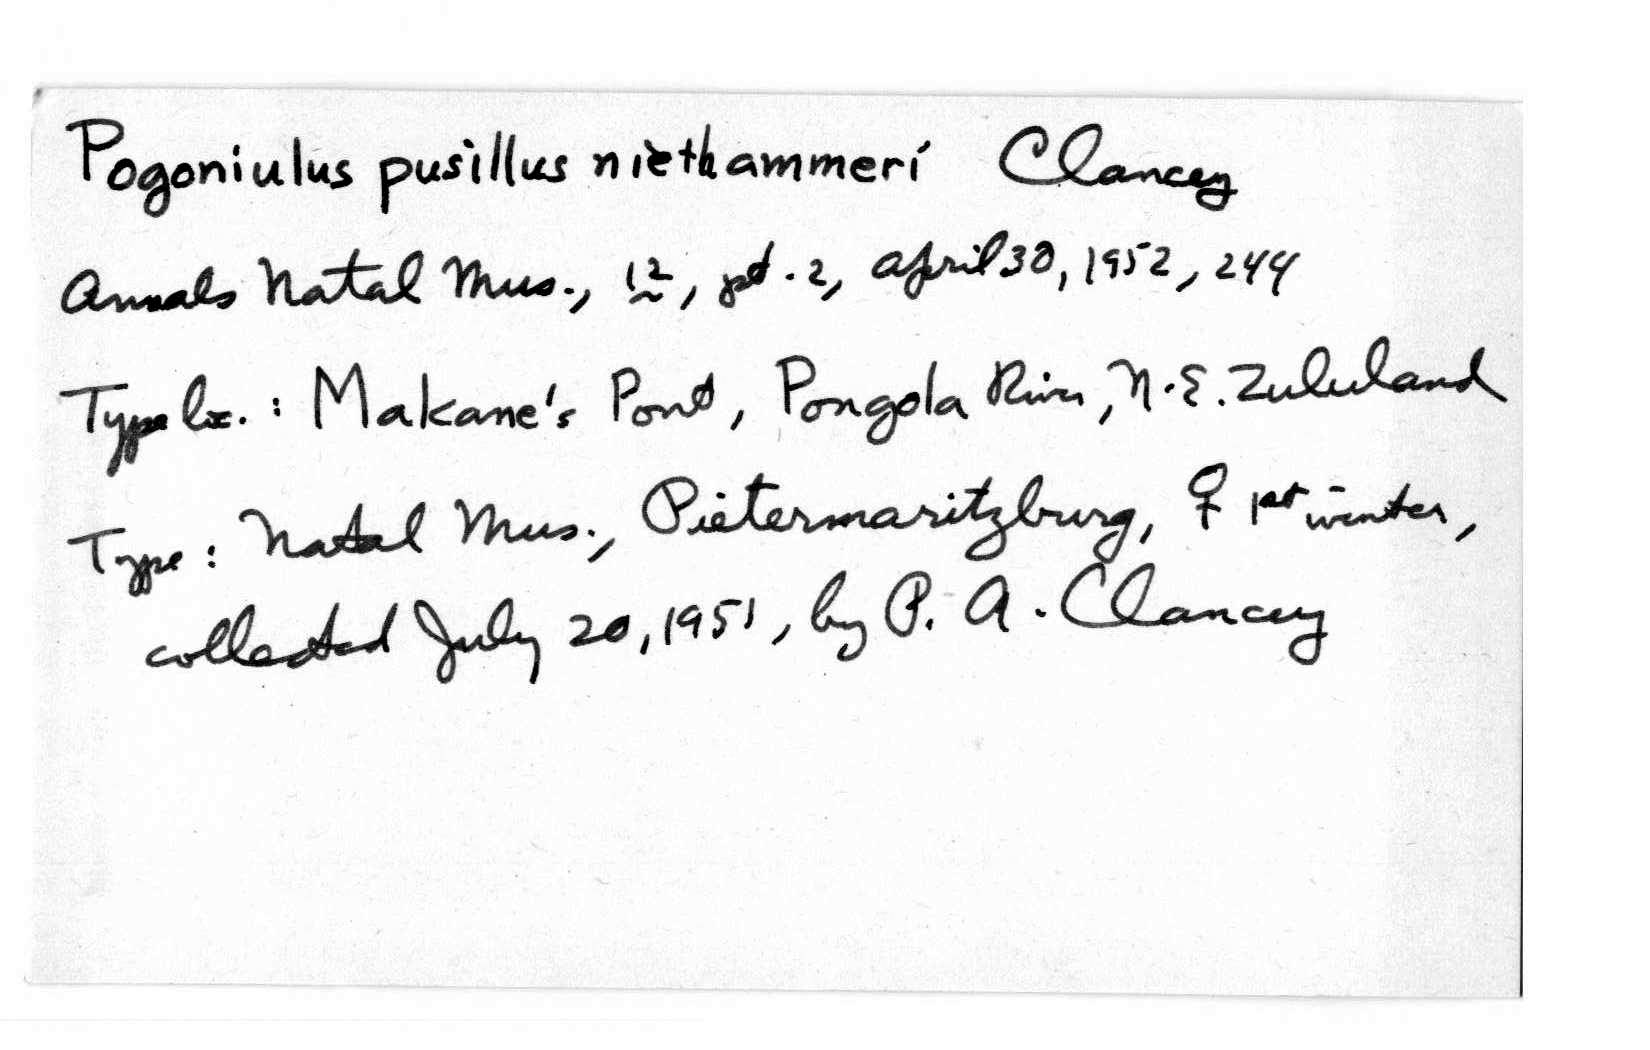 Pogoniulus pusillus niethammeri Clancey
Annals Natal Mus., 12, pt. 2, April 30, 1952, 244
Type loc.: Makane's Pont, Pongola River, N.E. Zululand
Type: Natal Mus., Pietermaritzburg, ♀ 1st winter,
collected July 20, 1951, by P. A. Clancey